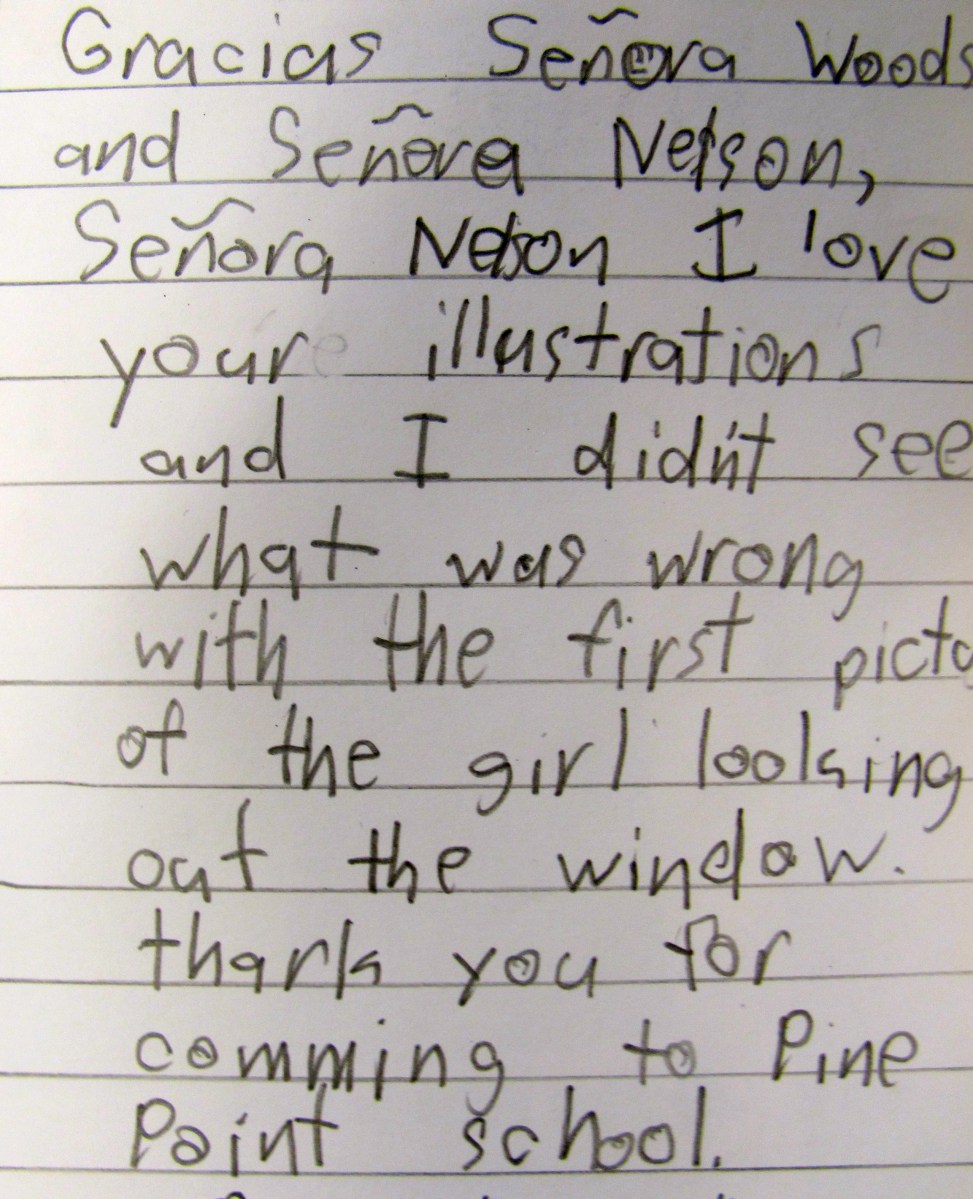 Gracias Señora Woods
and Señora Nelson,
Señora Nelson I love
your illustrations
and I didn't see
what was wrong
with the first picto
of the girl looking
out the window.
thank you for
comming to Pine
Point school.